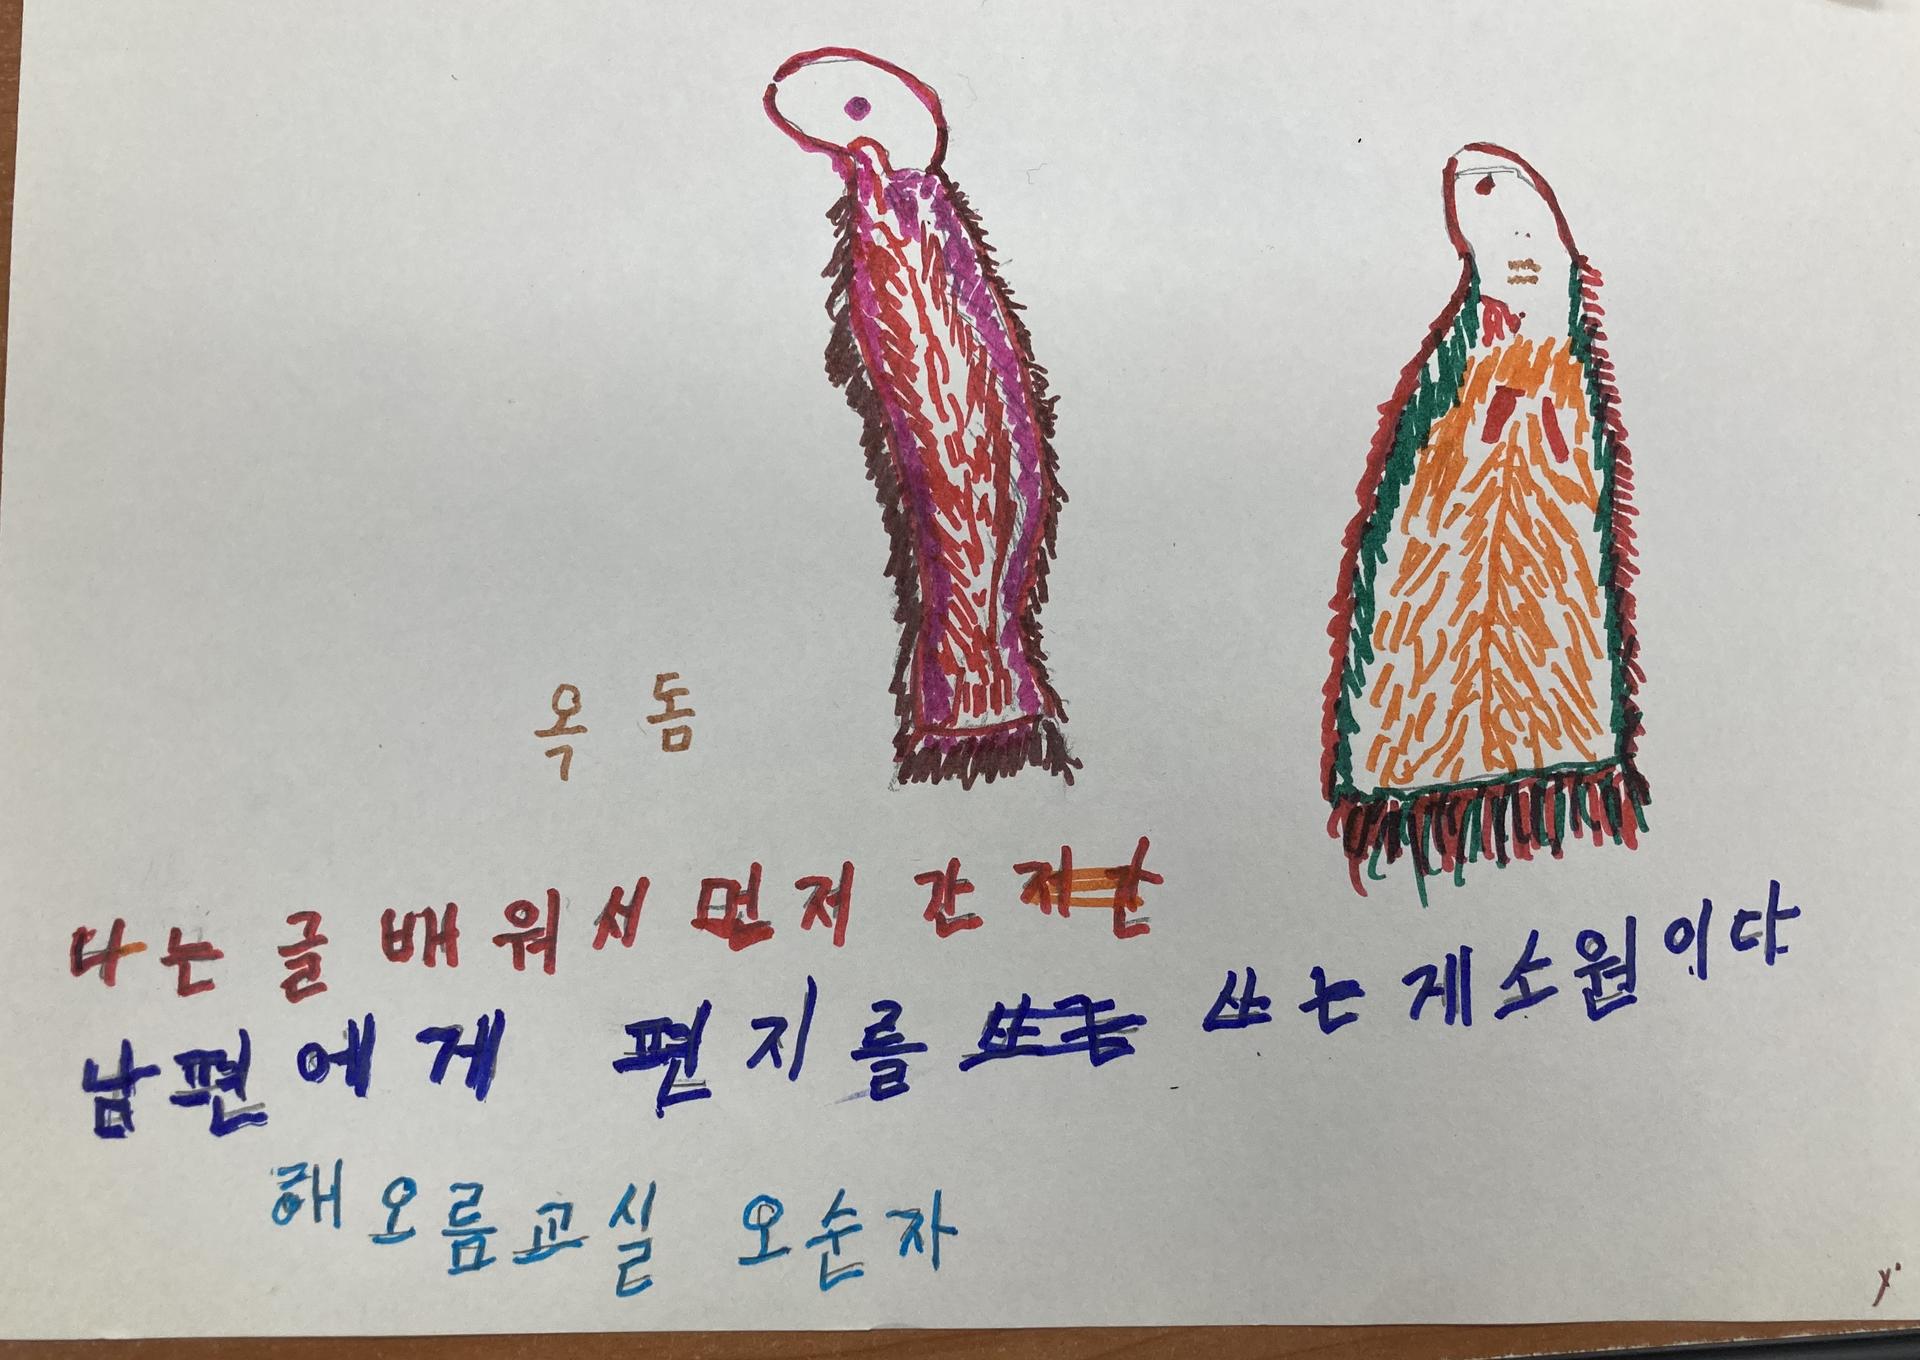 옥 돔
나는 글 배워서 먼저 간
남편에게 편지를 쓰는 게 소원이다
해오름교실 오순자